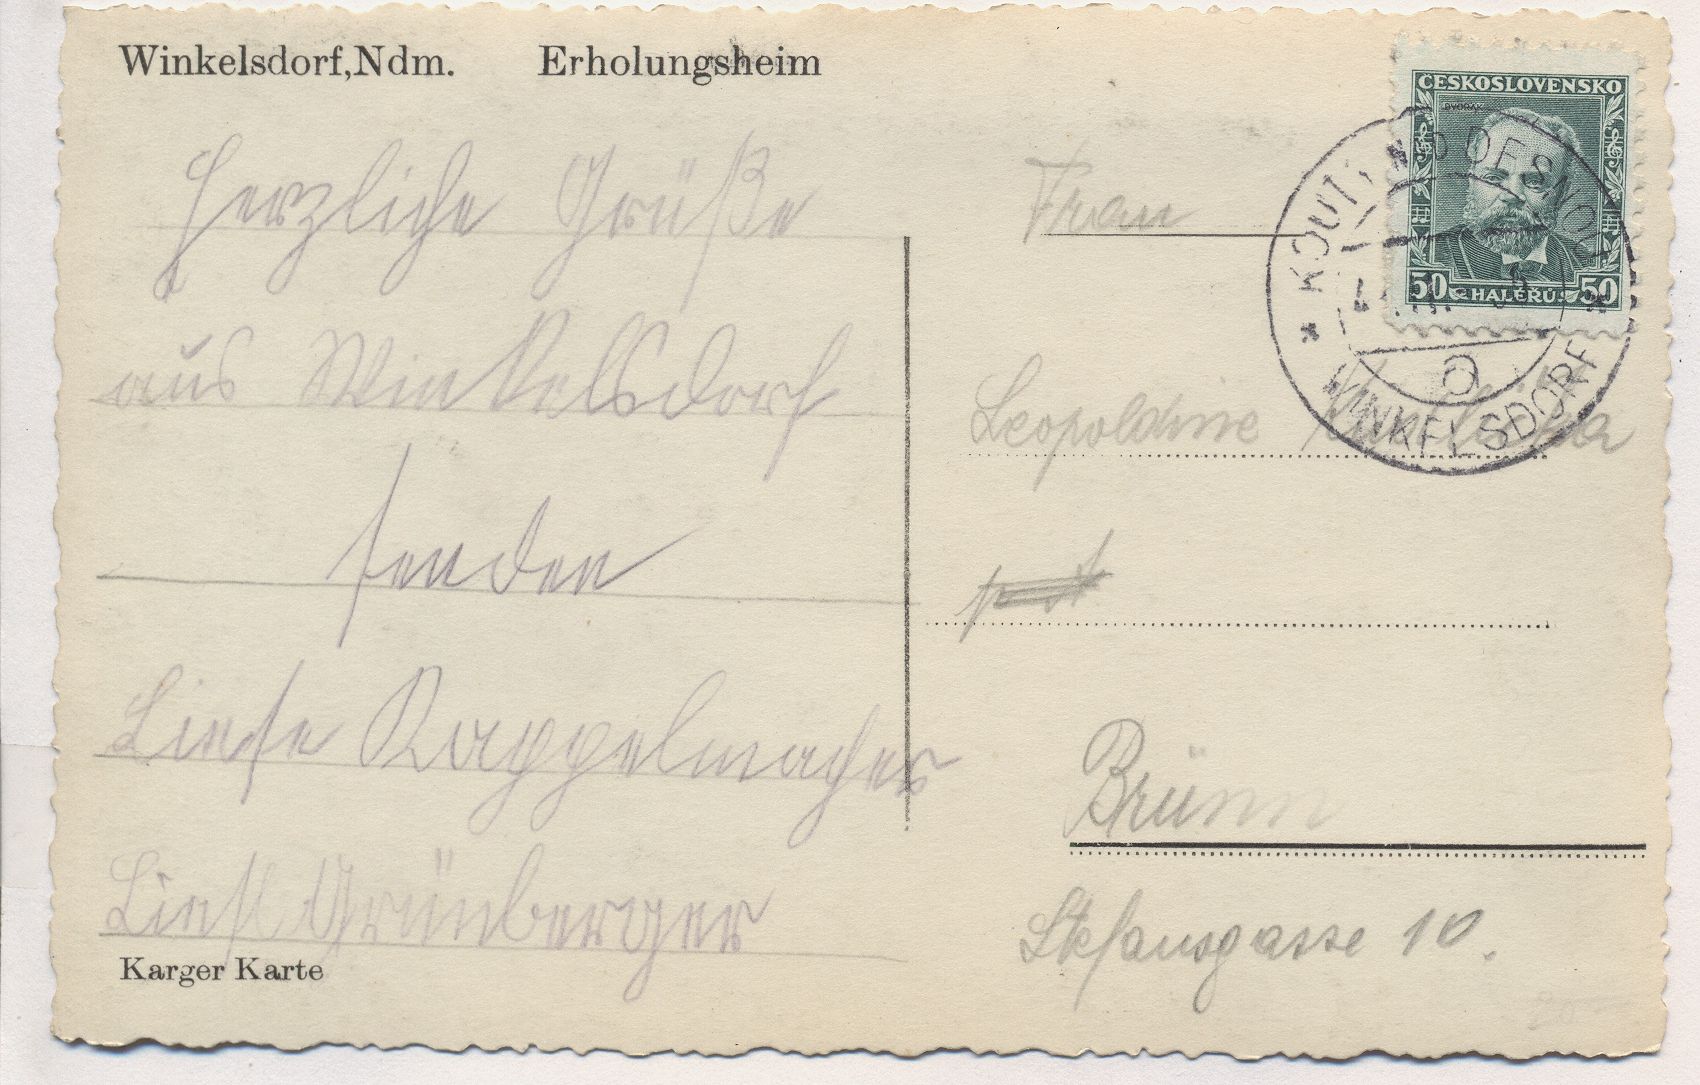 Winkelsdorf,Ndm. Erholungsheim
Herzliche Grüße
aus Winkelsdorf
senden
Liese Kappelmacher
Liesl Grünberger
Karger Karte
ČESKOSLOVENSKO
DVOŘÁK
50 HALÉŘŮ 50
KOUTY N D DESNOU
WINKELSDORF
Frau
Leopoldine
Brünn
Stefansgasse 10.